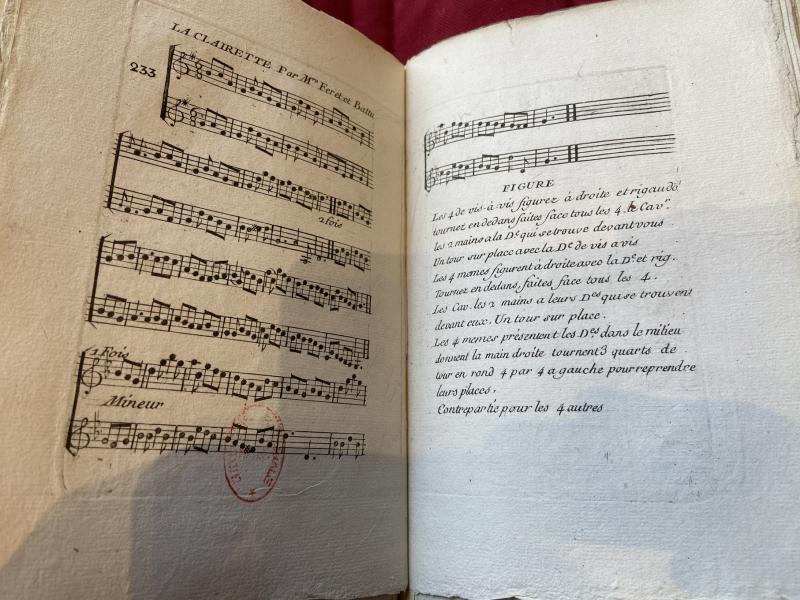 LA CLAIRETTE Par Mrs Feret et Ballu
233
2 fois
1 Fois
Mineur
FIGURE
Les 4 de vis-à-vis figurez à droite et rigaudō
tournez en dedans faites face tous les 4. le Cavr.
les 2 mains a la De qui se trouve devant vous
Un tour sur place avec la De de vis a vis
Les 4 memes figurent à droite avec la De et rig.
Tournez en dedans, faites face tous les 4.
Les Cav. les 2 mains a leurs Des qui se trouvent
devant eux. Un tour sur place.
Les 4 memes présentent les Des dans le milieu
donnent la main droite tournent 3 quarts de
tour en rond 4 par 4 a gauche pour reprendre
leurs places,
Contrepartie pour les 4 autres